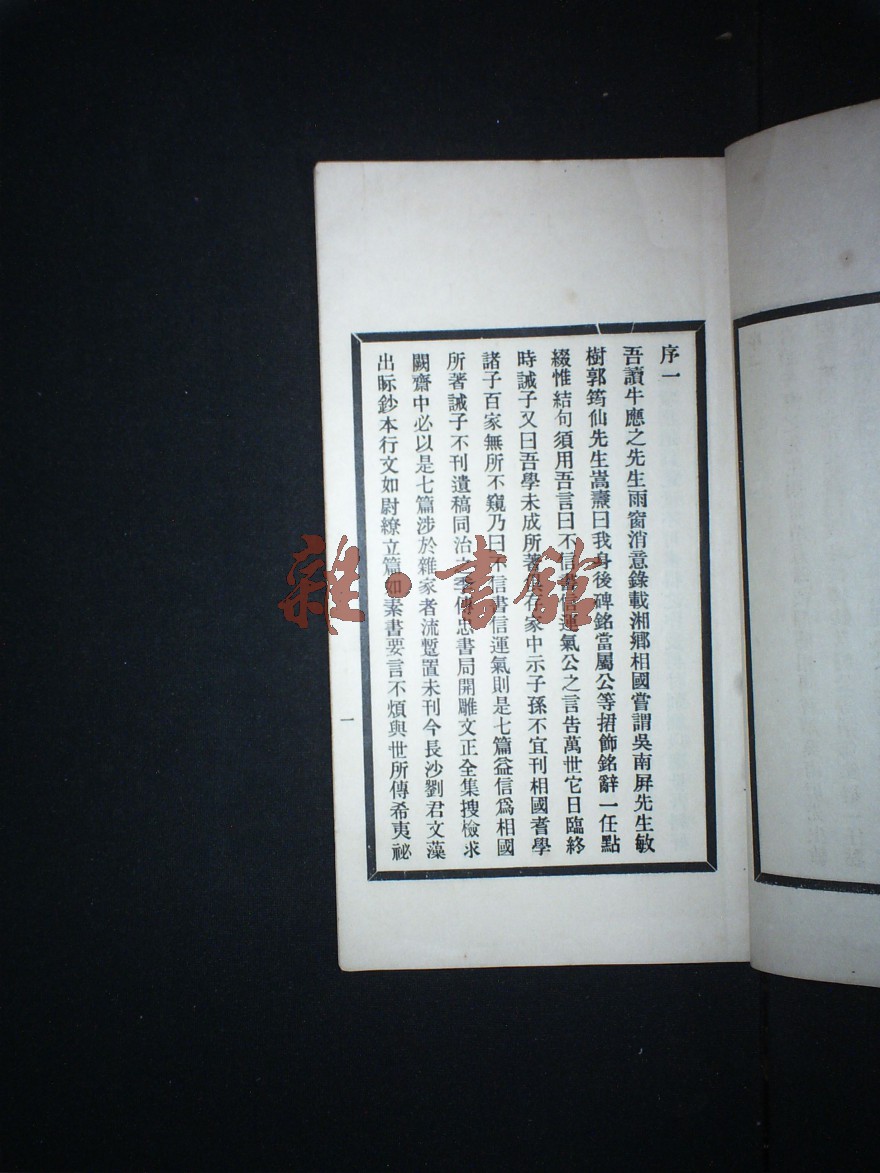 序一
吾讀牛應之先生雨窗消意錄載湘鄉相國嘗謂吳南屏先生敏
樹郭筠仙先生嵩燾曰我身後碑銘當屬公等捃飾銘辭一任點
綴惟結句須用吾言曰不信書信運氣公之言告萬世它日臨終
時誡子又曰吾學未成所著具存家中示子孫不宜刊相國耆學
諸子百家無所不窺乃曰不信書信運氣則是七篇益信爲相國
所著誡子不刊遺稿同治季傳忠書局開雕文正全集搜檢求
闕齋中必以是七篇涉於雜家者流蹔置未刊今長沙劉君文藻
出眎鈔本行文如尉繚立篇如素書要言不煩與世所傳希夷祕
一
雜·書館